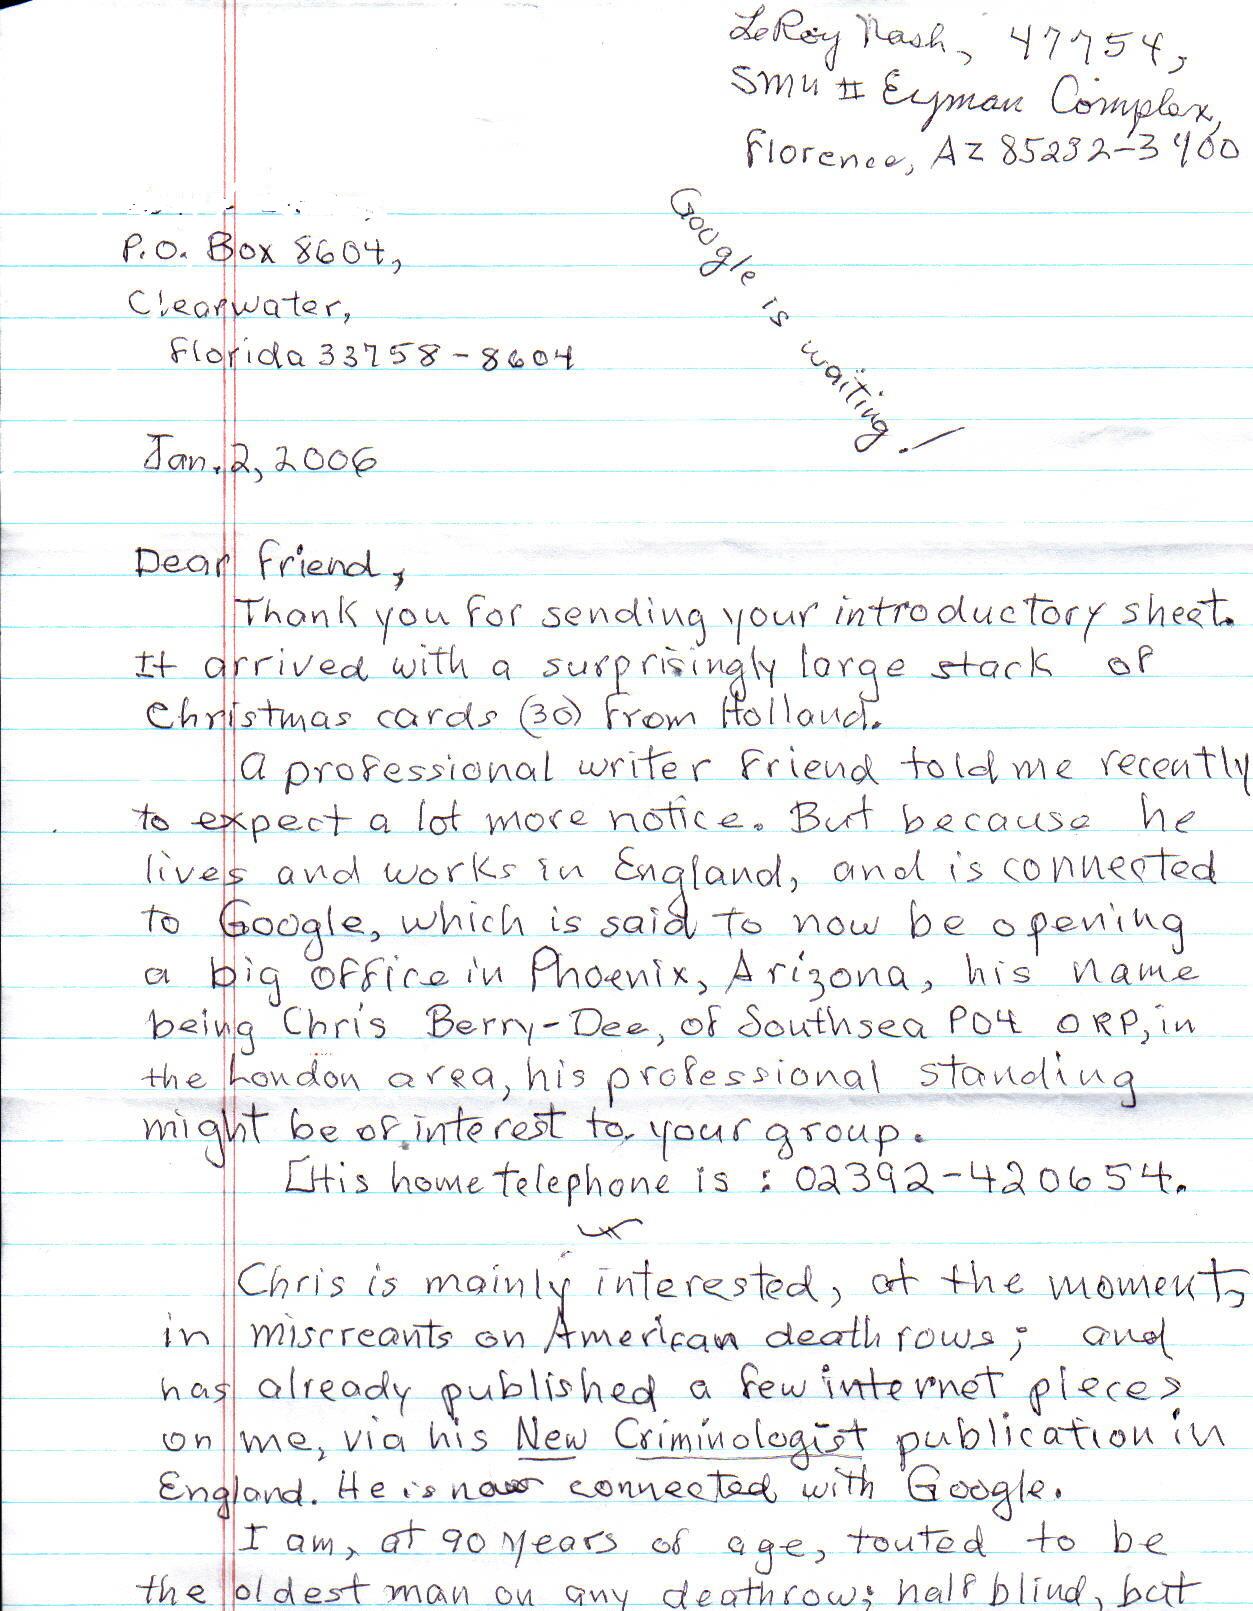 LeRoy Nash, 47754,
SMU II Eyman Complex,
Florence, AZ 85232-3400
Google is waiting!
P.O. Box 8604,
Clearwater,
Florida 33758-8604
Jan. 2, 2006
Dear friend,
Thank you for sending your introductory sheet.
It arrived with a surprisingly large stack of
Christmas cards (30) from Holland.
A professional writer friend told me recently
to expect a lot more notice. But because he
lives and works in England, and is connected
to Google, which is said to now be opening
a big office in Phoenix, Arizona, his name
being Chris Berry-Dee, of Southsea PO4 ORP, in
the London area, his professional standing
might be of interest to your group.
[His home telephone is: 02392-420654.
Chris is mainly interested, at the moment,
in miscreants on American death rows; and
has already published a few internet pieces
on me, via his New Criminologist publication in
England. He is now connected with Google.
I am, at 90 years of age, touted to be
the oldest man on any deathrow; half blind, but